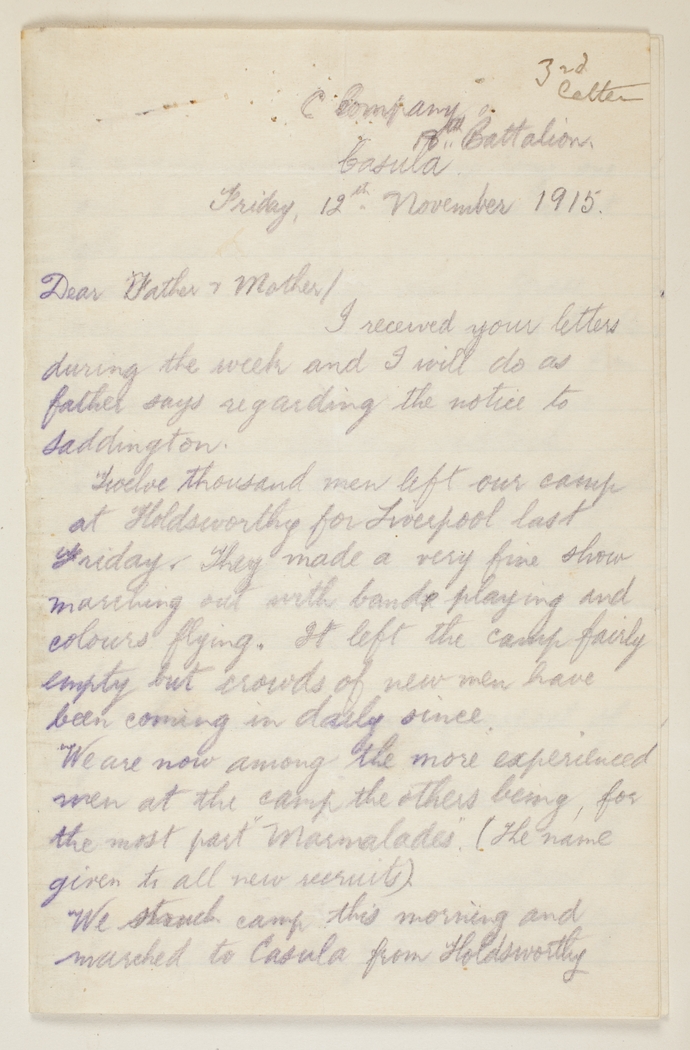 3rd
Letter
C Company
Battalion.
Casula
Friday, 12th November 1915.
Dear Father & Mother/
I received your letters
during the week and I will do as
father says regarding the notice to
Saddington.
Twelve thousand men left our camp
at Holdsworthy for Liverpool last
Friday. They made a very fine show
marching out with bands playing and
colours flying. It left the camp fairly
empty but crowds of new men have
been coming in daily since.
We are now among the more experienced
men at the camp the others being, for
the most part "Marmalades". (The name
given to all new recruits).
We struck camp this morning and
marched to Casula from Holdsworthy